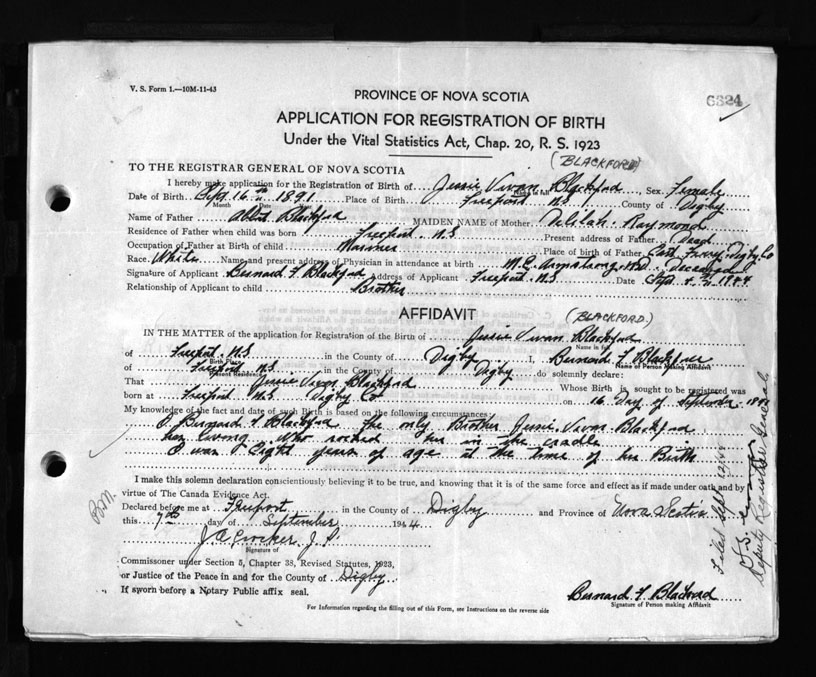 V. S. Form 1.—10M-11-43
6324
PROVINCE OF NOVA SCOTIA
APPLICATION FOR REGISTRATION OF BIRTH
Under the Vital Statistics Act, Chap. 20, R. S. 1923
(BLACKFORD)
TO THE REGISTRAR GENERAL OF NOVA SCOTIA
I hereby make application for the Registration of Birth of Jessie Vivan Blackford Sex Female
Name in full
Date of Birth Sept. 16th 1891 Place of Birth Freeport N.S County of Digby
Month Date
Name of Father Albert Blackford MAIDEN NAME of Mother Delilah Raymond
Residence of Father when child was born Freeport N.S Present address of Father dead
Occupation of Father at Birth of child Mariner Place of birth of Father East Ferry Digby Co
Race White Name and present address of Physician in attendance at birth M.C. Armstrong M.D. Deceased
Signature of Applicant Bernard F Blackford Address of Applicant Freeport N.S Date Sept. 1944
Relationship of Applicant to child Brother
AFFIDAVIT
(BLACKFORD.)
IN THE MATTER of the application for Registration of the Birth of Jessie Vivan Blackford
Name in full
of Freeport N.S in the County of Digby I, Bernard F Blackford
Birth Place Name of Person Making Affidavit
of Freeport N.S. in the County of Digby do solemnly declare:
Present Residence
That Jessie Vivan Blackford Whose Birth is sought to be registered was
born at Freeport N.S. Digby Co on 16 Day of September 1891
My knowledge of the fact and date of such Birth is based on the following circumstances:
I Bernard F Blackford the only Brother Jessie Vivan Blackford
has living. Who rocked her in the cradle
I was Eight years of age at the time of her Birth
I make this solemn declaration conscientiously believing it to be true, and knowing that it is of the same force and effect as if made under oath and by
virtue of The Canada Evidence Act.
Declared before me at Freeport in the County of Digby and Province of Nova Scotia
this 7th day of September 1944
J.P.
Signature of
Commissioner under Section 5, Chapter 38, Revised Statutes, 1923,
or Justice of the Peace in and for the County of Digby
If sworn before a Notary Public affix seal.
Bernard F Blackford
Signature of Person making Affidavit
For Information regarding the filling out of this Form, see Instructions on the reverse side
Filed Sept 12/44
Deputy Registrar General